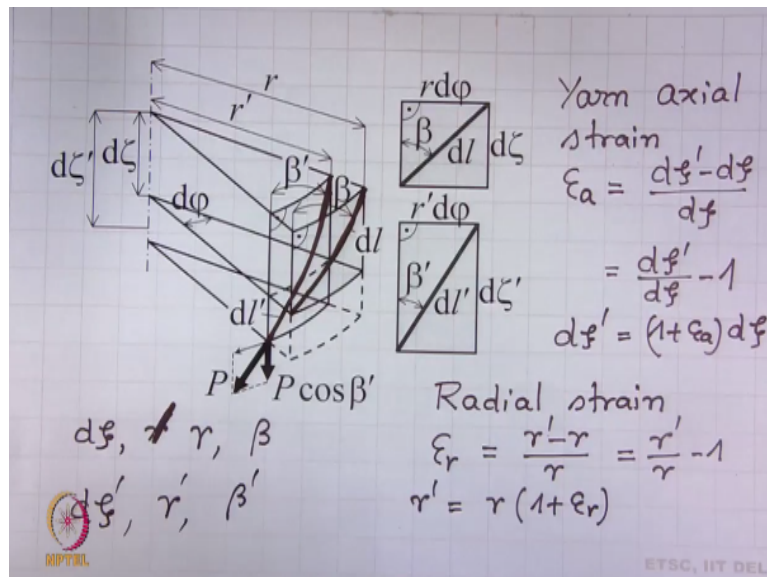 r
r′
dζ′
dζ
dφ
β′
β
dl
dl′
P
P cos β′
rdφ
β
dl
dζ
r′dφ
β′
dl′
dζ′
Yarn axial
strain
εa = (dζ′-dζ)/dζ
= dζ′/dζ -1
dζ′ = (1+εa)dζ
Radial strain
εr = (r′-r)/r = r′/r -1
r′ = r(1+εr)
dζ, r, β
dζ′, r′, β′
NPTEL
ETSC, IIT DEL